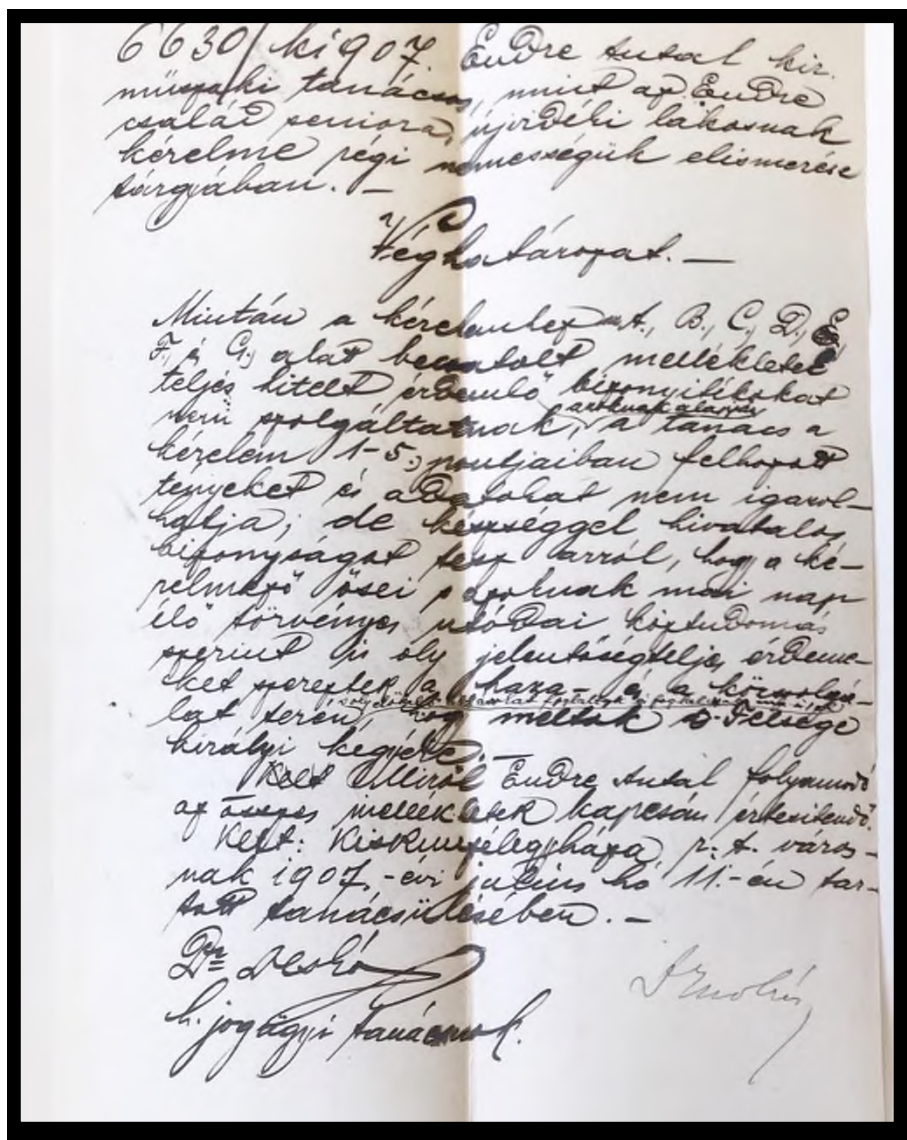 6630/ki907. Endre Antal kir.
műszaki tanácsos, mint az Endre
család seniora, újvidéki lakosnak
kérelme régi nemességük elismerése
tárgyában. —
Véghatározat. —
Miután a kérelemhez A., B., C., D., E.,
F., és G., alatt becsatolt mellékletek
teljes hitelt érdemlő bizonyítékokat
nem szolgáltatnak, azoknak alapján a tanács a
kérelem 1-5., pontjaiban felhozott
tényeket és adatokat nem igazol-
hatja; de készséggel hivatalos
bizonyságot tesz arról, hogy a ké-
relmező ősei s azoknak mai nap
élő törvényes utódai köztudomás
szerint is oly jelentőségteljes érdeme-
ket szereztek a haza- és a közszolgá-
lat terén, hogy méltók ő Felsége
királyi kegyére. —
Miről Endre Antal folyamodó
az összes mellékletek kapcsán értesítendő.
Kelt: Kiskunfélegyháza r. t. város-
nak 1907.-évi július hó 11.-én tar-
tott tanácsülésében. —
Dr
h. jogügyi tanácsnok.